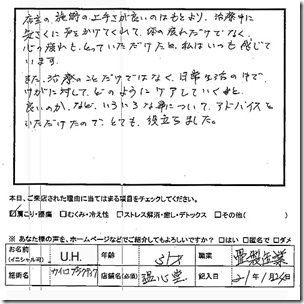 店主の施術の上手さが良いのはもとより、治療中に
気さくに声をかけてくれて、体の疲れだけでなく、
心の疲れも、とっていただけたと、私はいつも感じて
います。
また、治療のことだけではなく、日常生活の中で、
けがに対して、どのようにケアしていくと
良いのか、など、いろいろな事について、アドバイスを
いただけたので、とても、役立ちました。
本日、ご来店された理由に当てはまる項目をチェックしてください。
☑肩こり・腰痛 □むくみ・冷え性 □ストレス解消・癒し・デトックス □その他( )
※ あなた様の声を、ホームページなどでご紹介してもよろしいですか? □はい □匿名で □ダメ
お名前 (イニシャル可) U.H. 年齢 31才 職業
施術名 カイロプラクティック 店舗名 (必須) 温心堂 記入日 21/1/26日